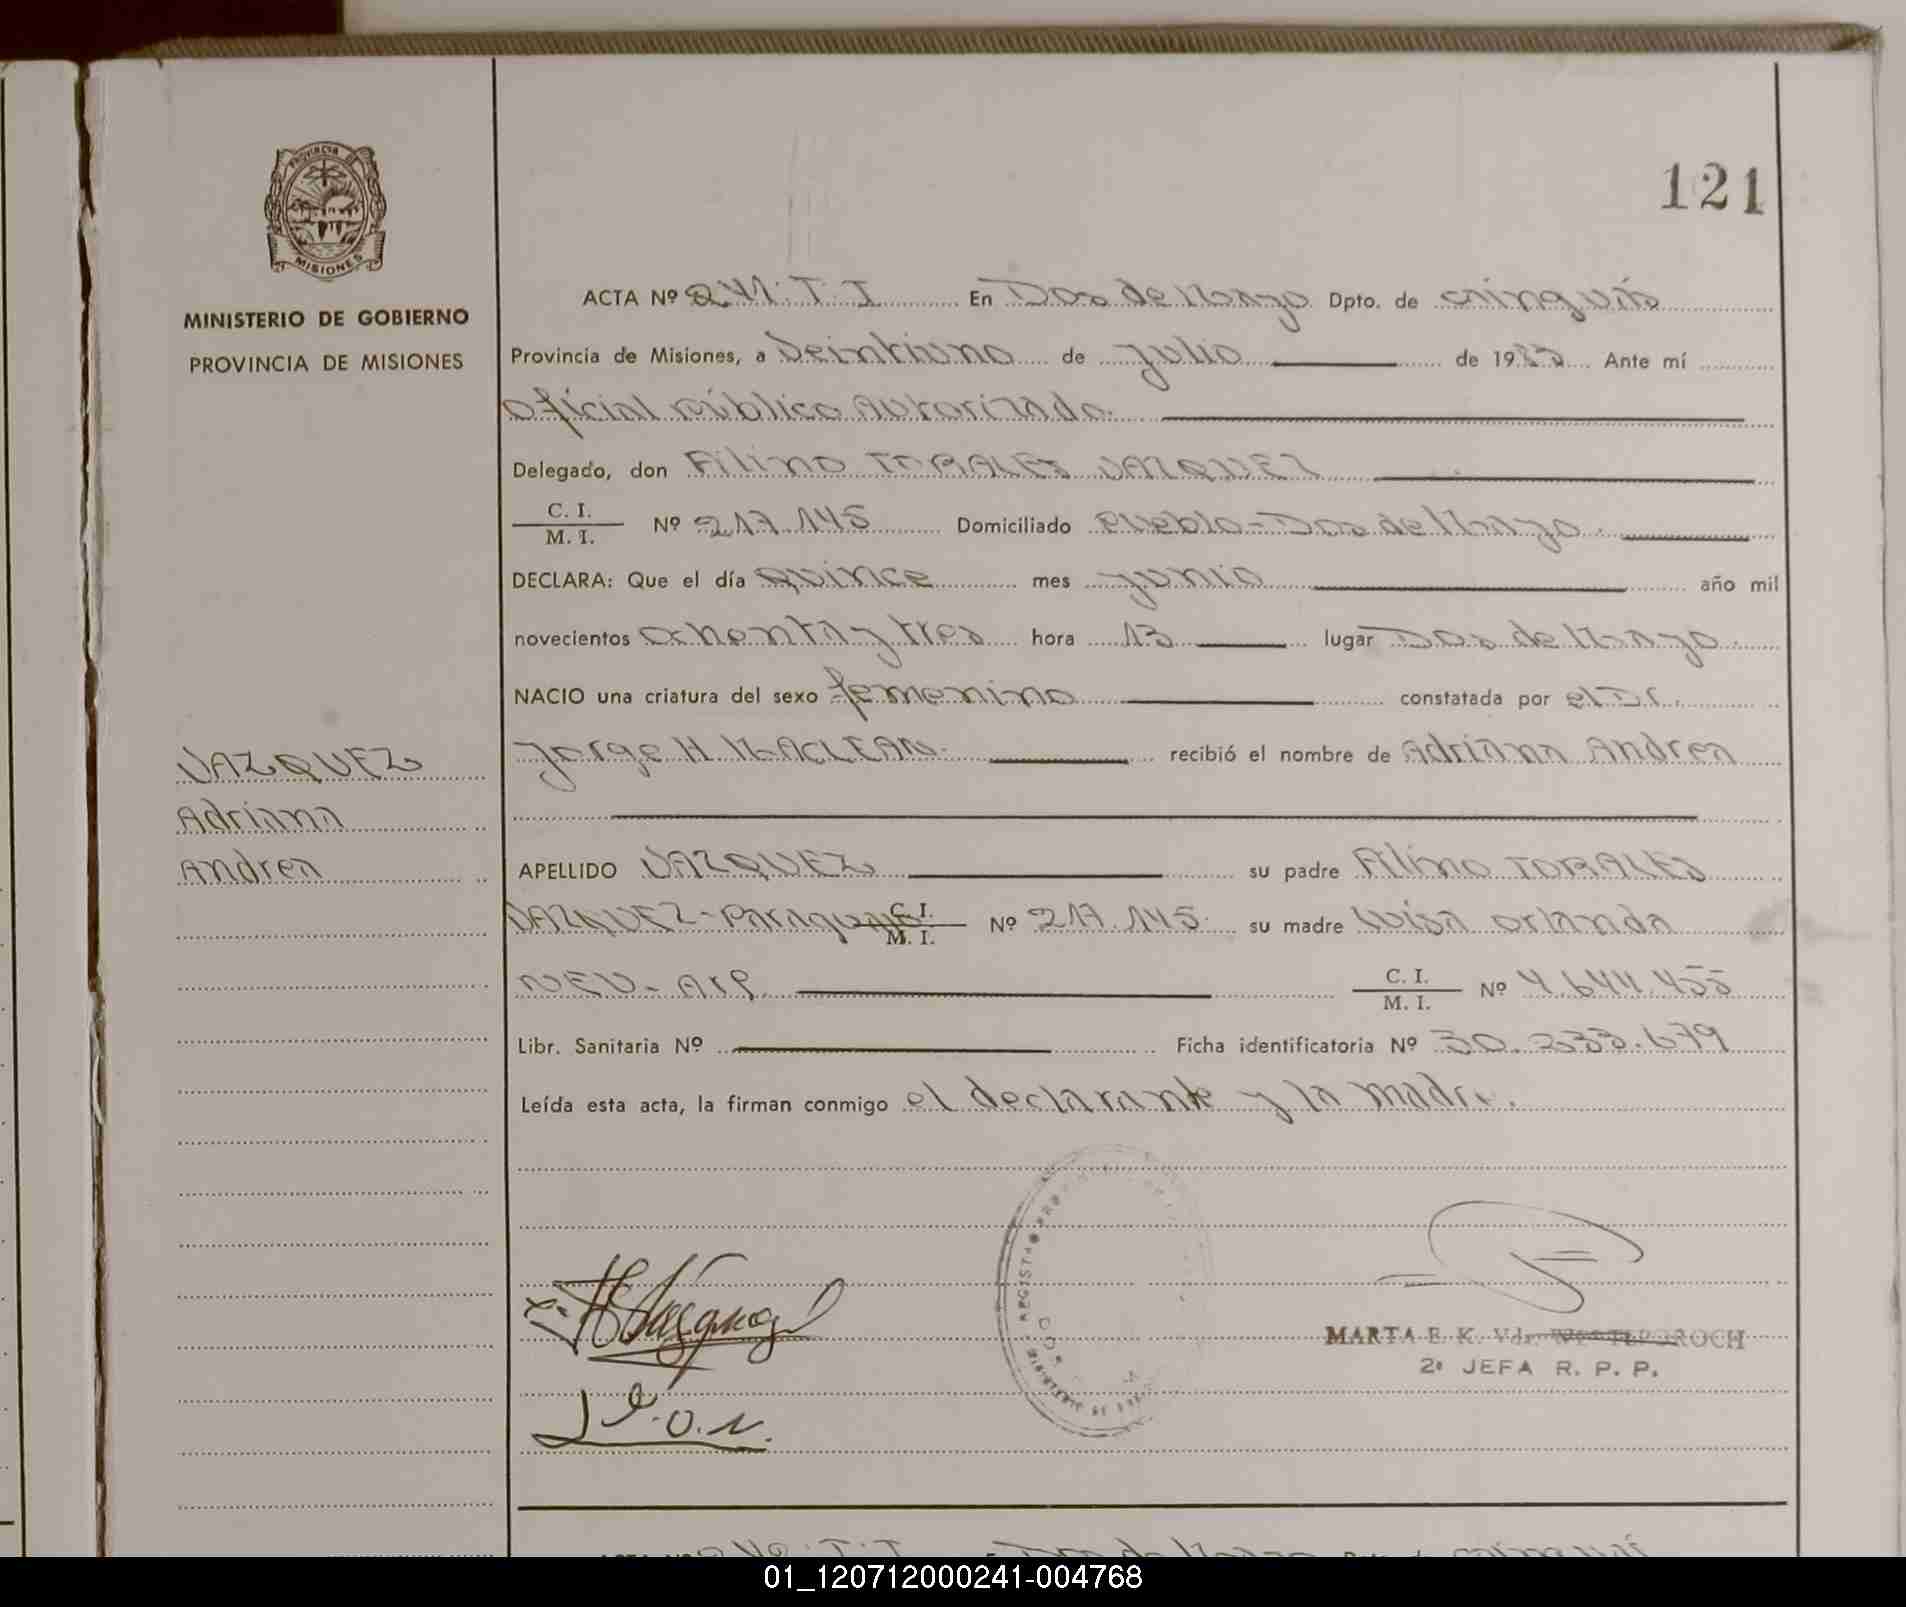 PROVINCIA DE
MISIONES
MINISTERIO DE GOBIERNO
PROVINCIA DE MISIONES
121
ACTA Nº 241. T. I En Dos de Mayo Dpto. de cainguás
Provincia de Misiones, a Veintiuno de julio de 1983 Ante mí
oficial público Autorizado.
Delegado, don Filino TORALES VAZQUEZ
C. I.
M. I. Nº 217.145 Domiciliado Pueblo-Dos de Mayo.
DECLARA: Que el día quince mes junio año mil
novecientos ochenta y tres hora 13 lugar Dos de Mayo.
NACIO una criatura del sexo femenino constatada por el Dr.
VAZQUEZ
Jorge H. MACLEAN. recibió el nombre de Adriana Andrea
Adriana
Andrea
APELLIDO VAZQUEZ su padre Filino TORALES
VAZQUEZ - Paraguayo C. I.
M. I. Nº 217.145. su madre Luisa Orlanda
NEU - Arg. C. I.
M. I. Nº 4.644.455
Libr. Sanitaria Nº Ficha identificatoria Nº 30.233.679
Leída esta acta, la firman conmigo el declarante y la madre.
L. O. N.
MARTA E. K. Vda.
2º JEFA R. P. P.
ACTA Nº 242. T. I En Dos de Mayo Dpto. de cainguás
01_120712000241-004768